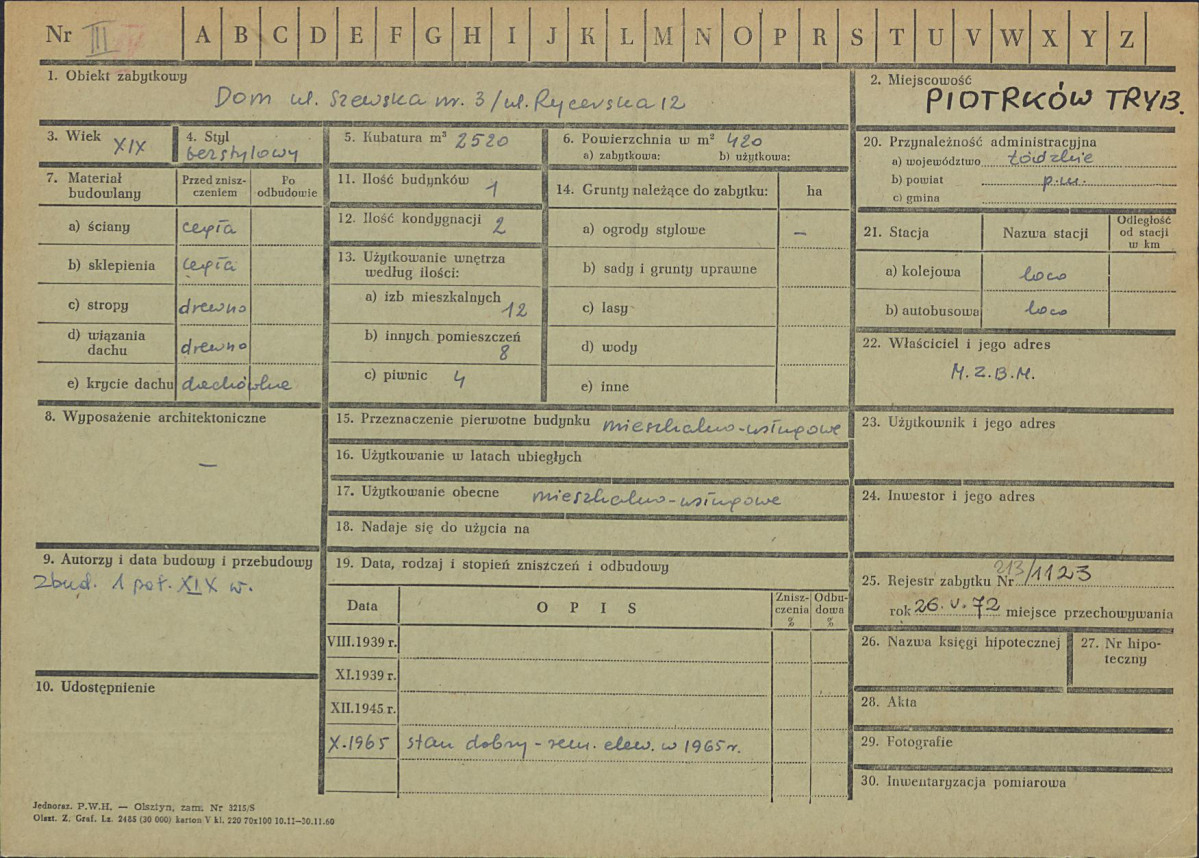 Nr III A B C D E F G H I J K L M N O P R S T U V W X Y Z
1. Obiekt zabytkowy
Dom ul. Szewska nr. 3/ul. Rycerska 12
2. Miejscowość
PIOTRKÓW TRYB.
3. Wiek XIX
4. Styl
bezstylowy
5. Kubatura m³ 2520
6. Powierzchnia w m² 420
a) zabytkowa: b) użytkowa:
7. Materiał budowlany
Przed zniszczeniem
Po odbudowie
a) ściany cegła
b) sklepienia cegła
c) stropy drewno
d) wiązania dachu drewno
e) krycie dachu dachówka
8. Wyposażenie architektoniczne
—
9. Autorzy i data budowy i przebudowy
Zbud. 1 poł. XIX w.
10. Udostępnienie
11. Ilość budynków 1
12. Ilość kondygnacji 2
13. Użytkowanie wnętrza
według ilości:
a) izb mieszkalnych 12
b) innych pomieszczeń 8
c) piwnic 4
14. Grunty należące do zabytku: ha
a) ogrody stylowe —
b) sady i grunty uprawne
c) lasy
d) wody
e) inne
15. Przeznaczenie pierwotne budynku mieszkalno-usługowe
16. Użytkowanie w latach ubiegłych
17. Użytkowanie obecne mieszkalno-usługowe
18. Nadaje się do użycia na
19. Data, rodzaj i stopień zniszczeń i odbudowy
Data OPIS Zniszczenia % Odbudowa %
VIII.1939 r.
XI.1939 r.
XII.1945 r.
X.1965 stan dobry - rem. elew. w 1965 r.
20. Przynależność administracyjna
a) województwo łódzkie
b) powiat p.m.
c) gmina
21. Stacja Nazwa stacji Odległość od stacji w km
a) kolejowa loco
b) autobusowa loco
22. Właściciel i jego adres
M.Z.B.M.
23. Użytkownik i jego adres
24. Inwestor i jego adres
25. Rejestr zabytku Nr 213/1123
rok 26.V.72 miejsce przechowywania
26. Nazwa księgi hipotecznej
27. Nr hipoteczny
28. Akta
29. Fotografie
30. Inwentaryzacja pomiarowa
Jednoraz. P.W.H. — Olsztyn, zam. Nr 3215/S
Olszt. Z. Graf. Lz. 2485 (30 000) karton V kl. 220 70x100 10.11—30.11.60